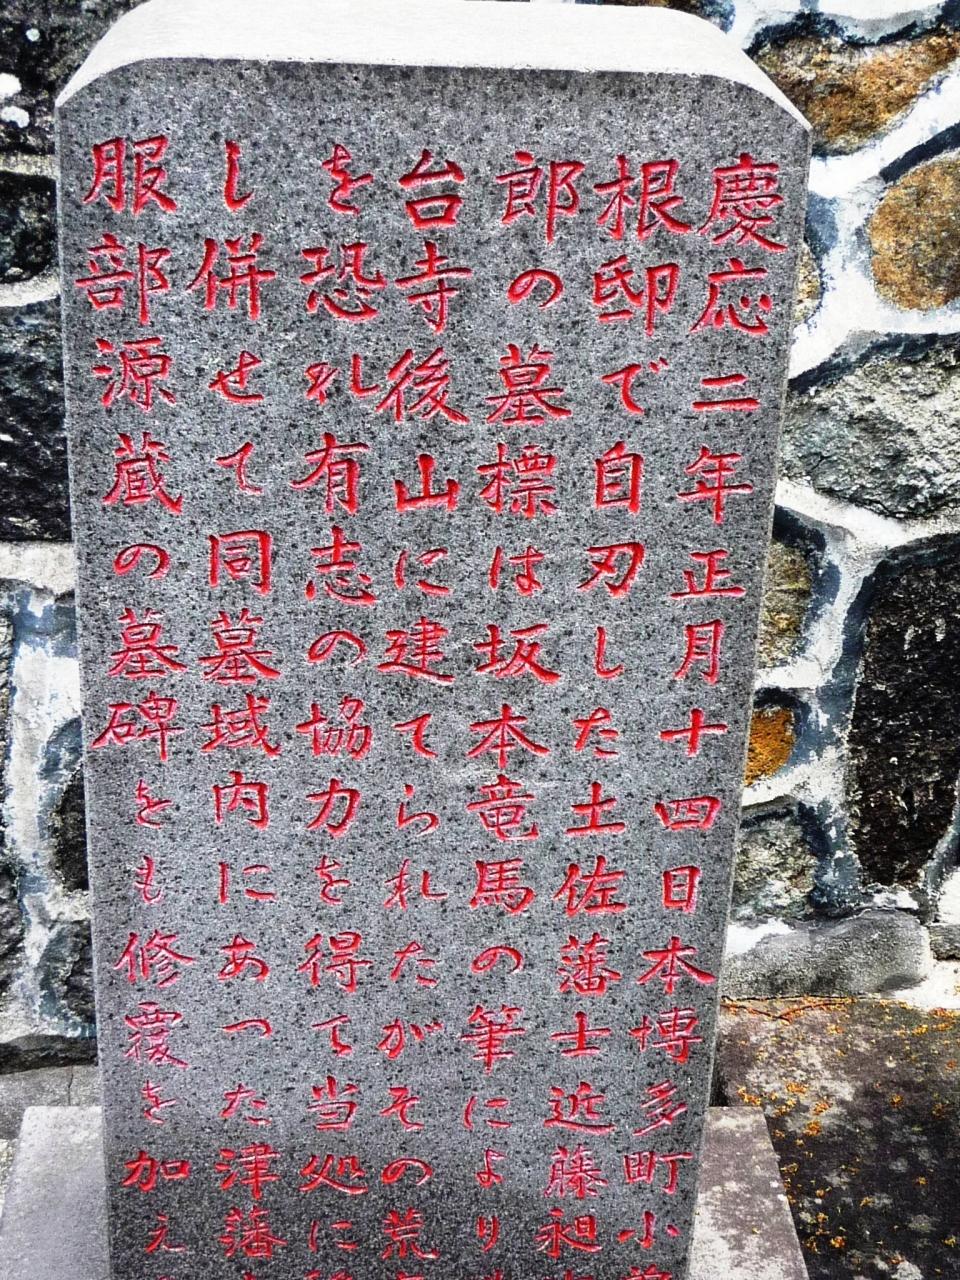 慶応二年正月十四日本博多町小
根邸で自刃した土佐藩士近藤昶
郎の墓標は坂本竜馬の筆により
台寺後山に建てられたがその荒
を恐れ有志の協力を得て当処に
し併せて同墓域内にあった津藩
服部源蔵の墓碑をも修覆を加え